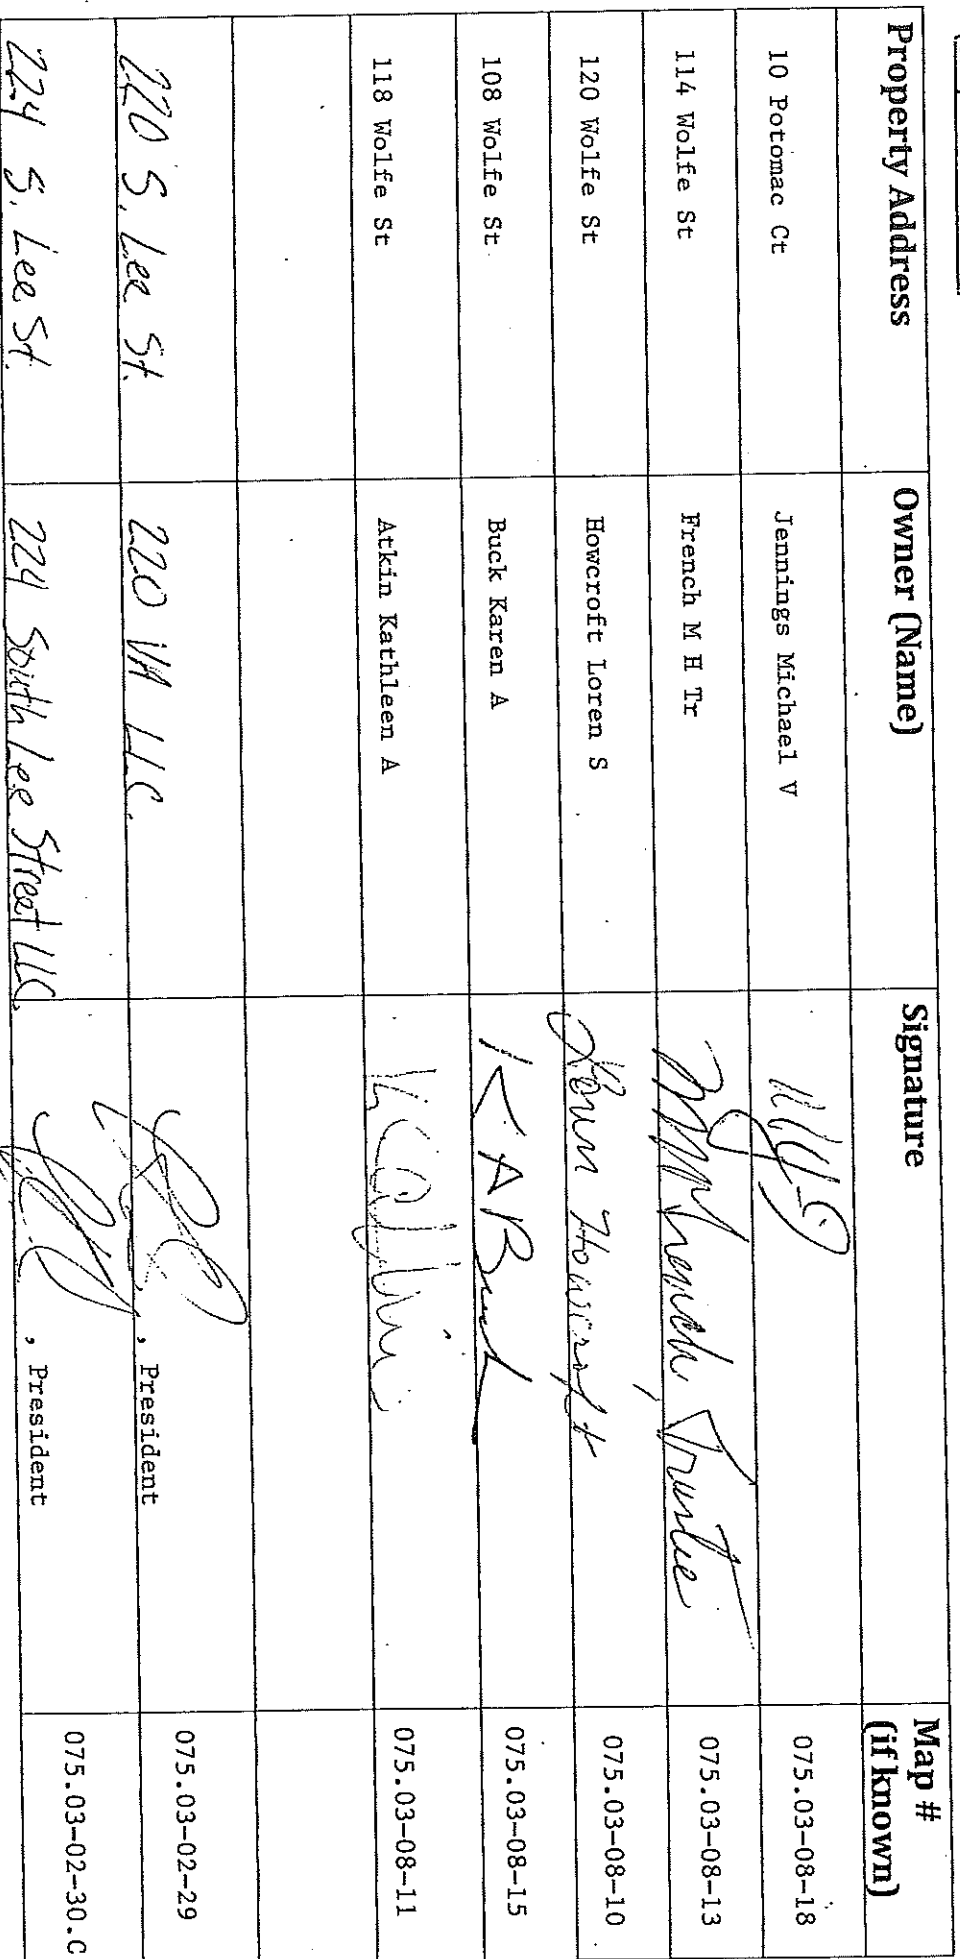 Property Address Owner (Name) Signature Map #
(if known)
10 Potomac Ct Jennings Michael V 075.03-08-18
114 Wolfe St French M H Tr MH French, Trustee 075.03-08-13
120 Wolfe St Howcroft Loren S Loren Howcroft 075.03-08-10
108 Wolfe St Buck Karen A KABuck 075.03-08-15
118 Wolfe St Atkin Kathleen A 075.03-08-11
220 S. Lee St. 220 VA LLC. , President 075.03-02-29
224 S. Lee St. 224 South Lee Street LLC , President 075.03-02-30.C